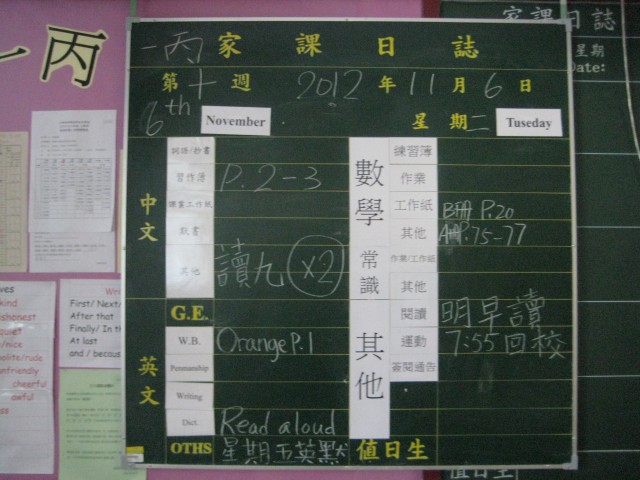 一丙
一丙 家課日誌
第十週 2012年11月6日
6th November 星期二 Tuseday
中文
詞語/抄書
習作簿 P.2-3
課室工作紙
默書
其他 讀九 ×2
G.E.
英文
W.B. Orange P.1
Penmanship
Writing
Dict. Read aloud
OTHS 星期五英默
數學
練習簿
作業
工作紙 B冊 P.20
其他 A冊P.75-77
常識
作業/工作紙
其他
其他
閱讀 明早讀
運動 7:55回校
簽閱通告
值日生
家課日誌
星期
Date:
值日生
kind
quiet
/nice
cheerful
awful
First/ Next/
After that
Finally/ In th
At last
and / becaus